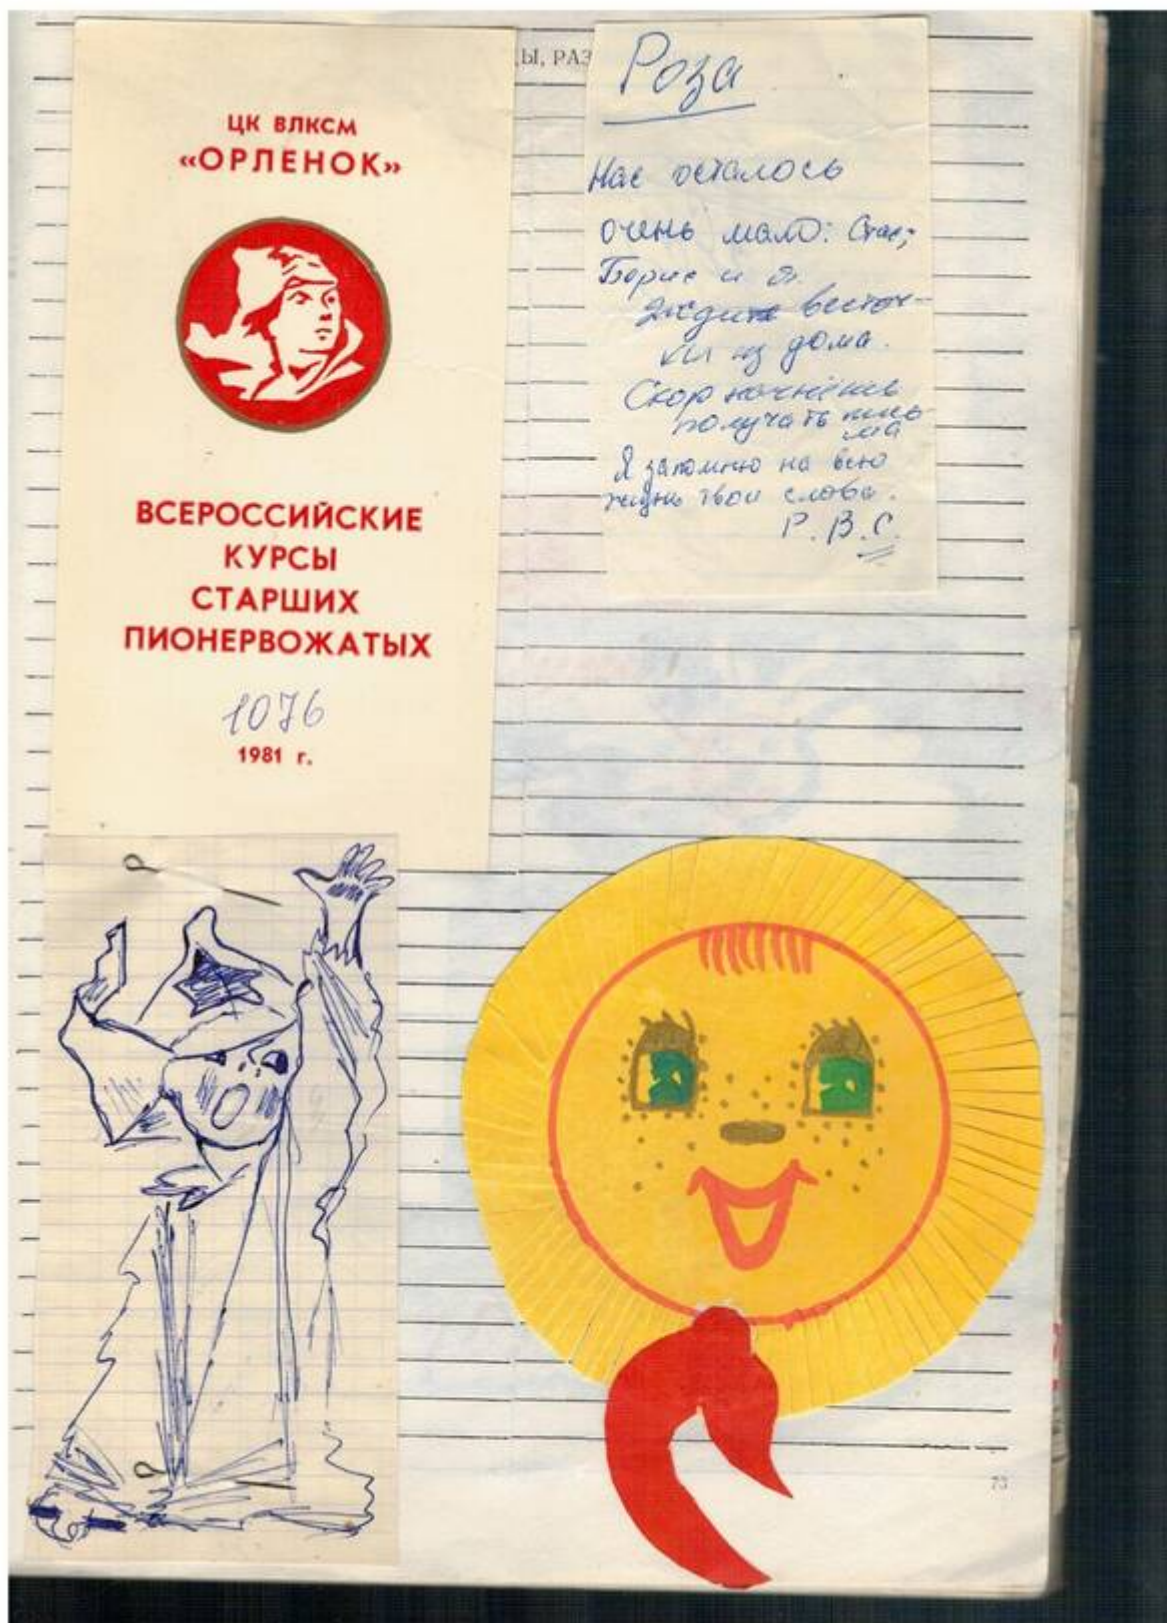 ЦК ВЛКСМ
«ОРЛЕНОК»
ВСЕРОССИЙСКИЕ
КУРСЫ
СТАРШИХ
ПИОНЕРВОЖАТЫХ
1076
1981 г.
Ы, РАЗ
Роза
Нас осталось
очень мало: Стас,
Борис и я.
Ждите весточ-
ки из дома.
Скоро начнёшь
получать пись
ма
Я запомню на всю
жизнь твои слова.
Р.В.С.
73